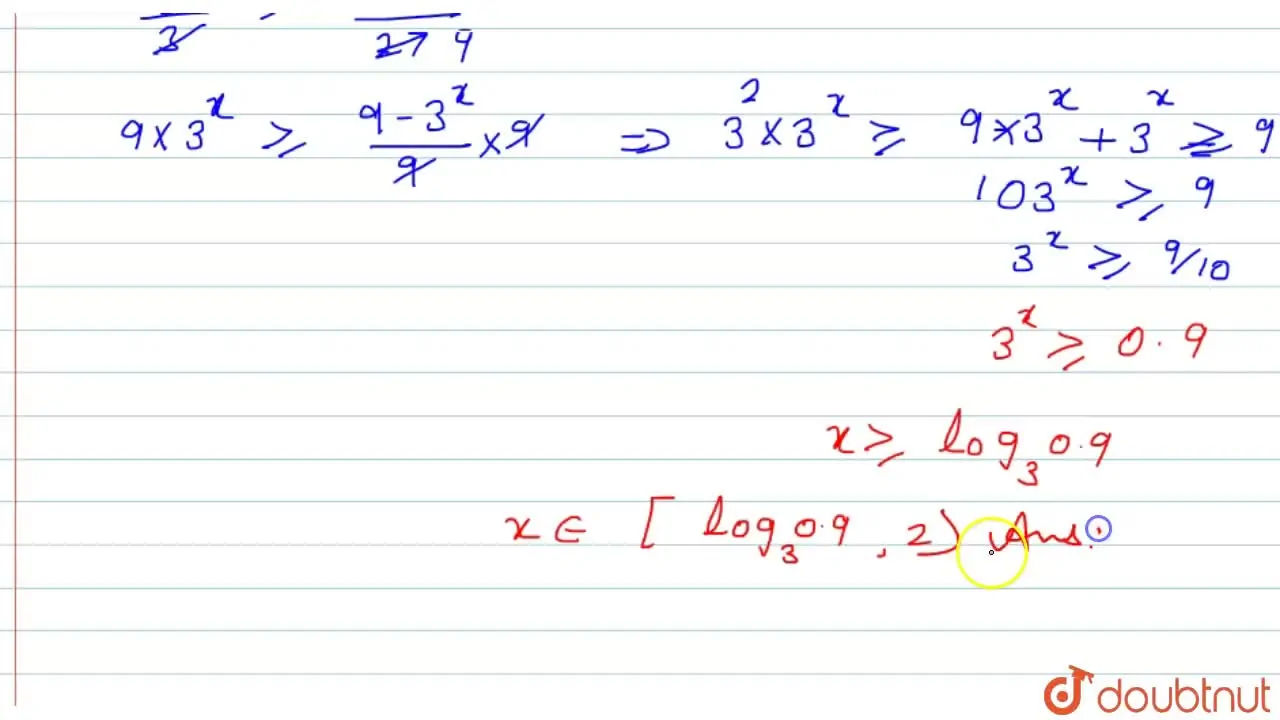 3 27 9
9 × 3^x ≥ (9 - 3^x)/9 × 9 ⇒ 3^2 × 3^x ≥ 9 × 3^x + 3^x ≥ 9
10 3^x ≥ 9
3^x ≥ 9/10
3^x ≥ 0.9
x ≥ log_3 0.9
x ∈ [ log_3 0.9 , 2) Ans.
doubtnut